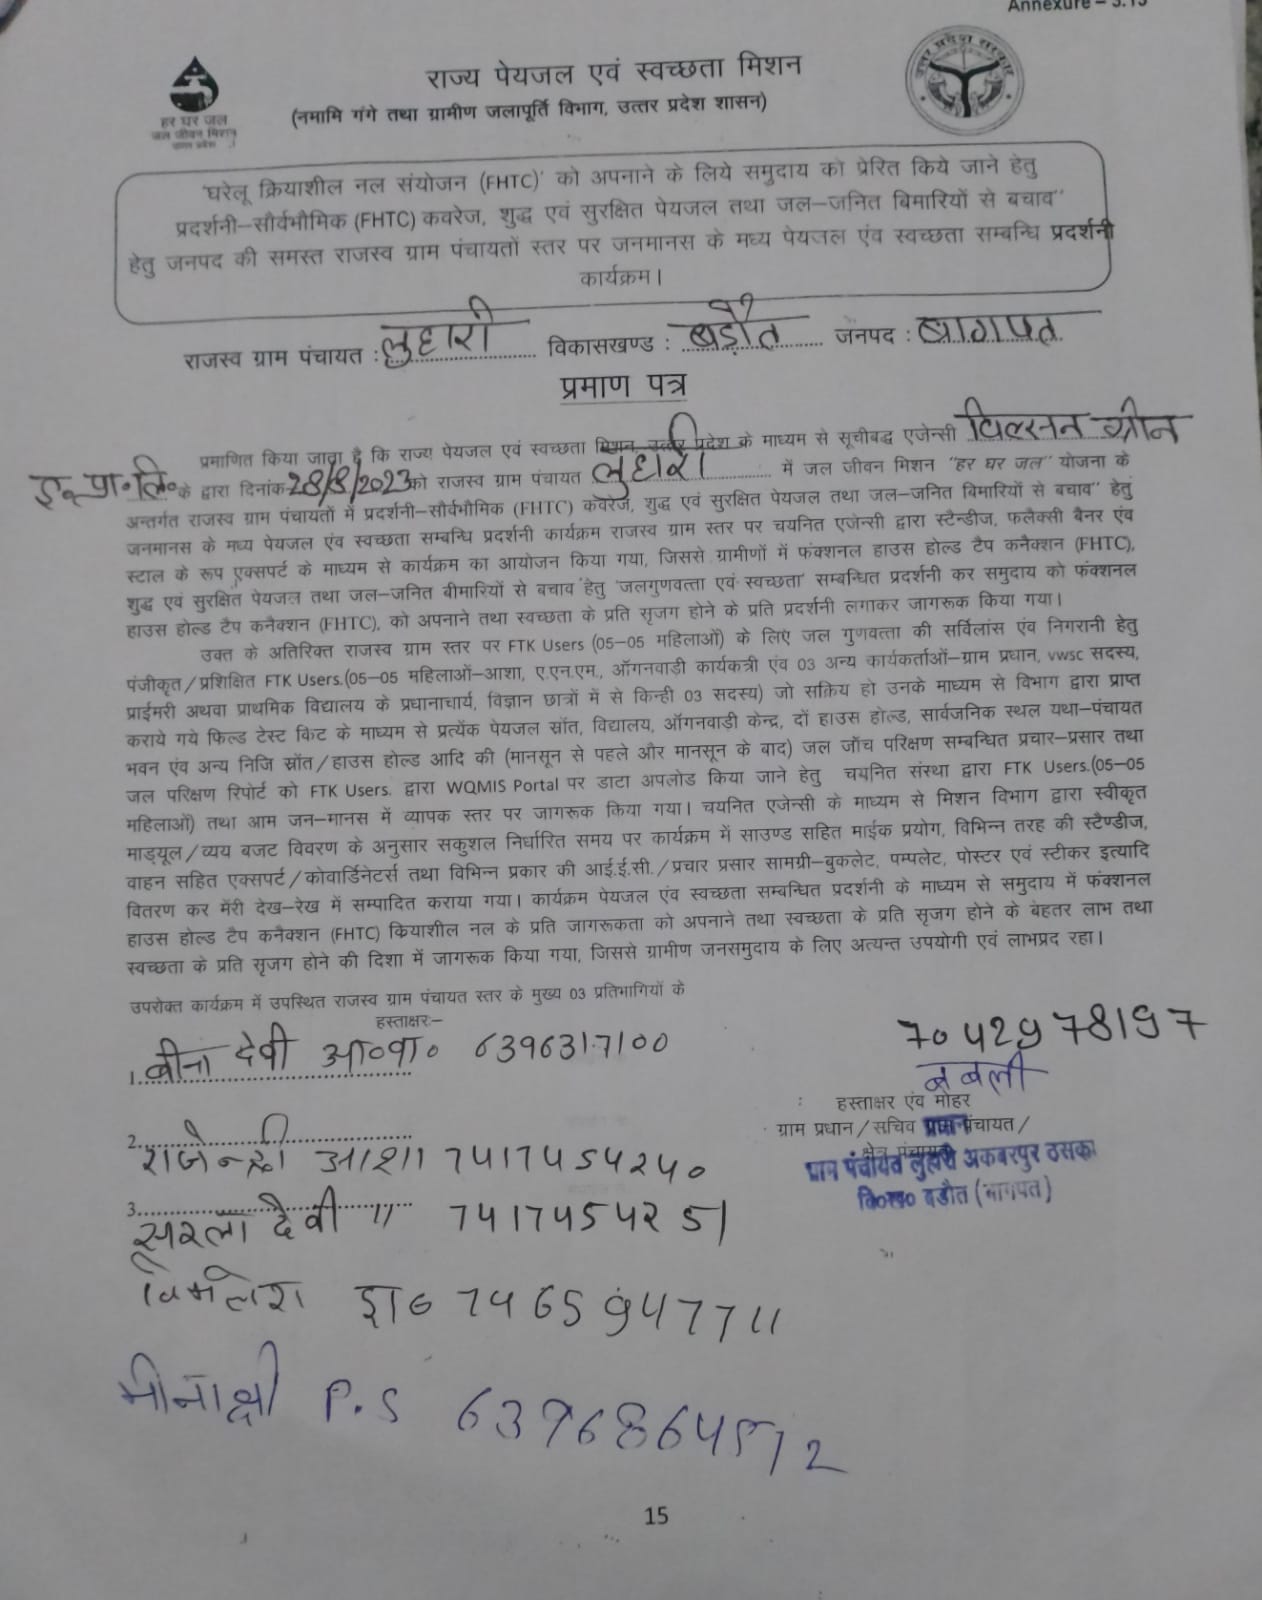 Annexure – 5.15
राज्य पेयजल एवं स्वच्छता मिशन
(नमामि गंगे तथा ग्रामीण जलापूर्ति विभाग, उत्तर प्रदेश शासन)
हर घर जल
जल जीवन मिशन
उत्तर प्रदेश
उत्तर प्रदेश सरकार
'घरेलू क्रियाशील नल संयोजन (FHTC)' को अपनाने के लिये समुदाय को प्रेरित किये जाने हेतु
प्रदर्शनी–सौर्वभौमिक (FHTC) कवरेज, शुद्ध एवं सुरक्षित पेयजल तथा जल–जनित बिमारियों से बचाव"
हेतु जनपद की समस्त राजस्व ग्राम पंचायतों स्तर पर जनमानस के मध्य पेयजल एंव स्वच्छता सम्बन्धि प्रदर्शनी
कार्यक्रम।
राजस्व ग्राम पंचायत : लुहारी विकासखण्ड : बड़ौत जनपद : बागपत
प्रमाण पत्र
प्रमाणित किया जाता है कि राज्य पेयजल एवं स्वच्छता मिशन, उत्तर प्रदेश के माध्यम से सूचीबद्ध एजेन्सी विल्सन ग्रीन
इ० प्रा० लि० के द्वारा दिनांक 28/8/2023 को राजस्व ग्राम पंचायत लुहारी में जल जीवन मिशन "हर घर जल" योजना के
अन्तर्गत राजस्व ग्राम पंचायतों में प्रदर्शनी–सौर्वभौमिक (FHTC) कवरेज, शुद्ध एवं सुरक्षित पेयजल तथा जल–जनित बिमारियों से बचाव" हेतु
जनमानस के मध्य पेयजल एंव स्वच्छता सम्बन्धि प्रदर्शनी कार्यक्रम राजस्व ग्राम स्तर पर चयनित एजेन्सी द्वारा स्टैन्डीज, फलैक्सी बैनर एंव
स्टाल के रूप एक्सपर्ट के माध्यम से कार्यक्रम का आयोजन किया गया, जिससे ग्रामीणों में फंक्शनल हाउस होल्ड टैप कनैक्शन (FHTC),
शुद्ध एवं सुरक्षित पेयजल तथा जल–जनित बीमारियों से बचाव हेतु 'जलगुणवत्ता एवं स्वच्छता' सम्बन्धित प्रदर्शनी कर समुदाय को फंक्शनल
हाउस होल्ड टैप कनैक्शन (FHTC), को अपनाने तथा स्वच्छता के प्रति सृजग होने के प्रति प्रदर्शनी लगाकर जागरूक किया गया।
उक्त के अतिरिक्त राजस्व ग्राम स्तर पर FTK Users (05–05 महिलाओं) के लिए जल गुणवत्ता की सर्विलांस एंव निगरानी हेतु
पंजीकृत/प्रशिक्षित FTK Users.(05–05 महिलाओं–आशा, ए.एन.एम., ऑगनवाड़ी कार्यकत्री एंव 03 अन्य कार्यकर्ताओं–ग्राम प्रधान, vwsc सदस्य,
प्राईमरी अथवा प्राथमिक विद्यालय के प्रधानाचार्य, विज्ञान छात्रों में से किन्ही 03 सदस्य) जो सक्रिय हो उनके माध्यम से विभाग द्वारा प्राप्त
कराये गये फिल्ड टेस्ट किट के माध्यम से प्रत्येंक पेयजल स्रोंत, विद्यालय, ऑगनवाड़ी केन्द्र, दों हाउस होल्ड, सार्वजनिक स्थल यथा–पंचायत
भवन एंव अन्य निजि स्रोंत/हाउस होल्ड आदि की (मानसून से पहले और मानसून के बाद) जल जॉंच परिक्षण सम्बन्धित प्रचार–प्रसार तथा
जल परिक्षण रिपोर्ट को FTK Users. द्वारा WQMIS Portal पर डाटा अपलोड किया जाने हेतु चयनित संस्था द्वारा FTK Users.(05–05
महिलाओं) तथा आम जन–मानस में व्यापक स्तर पर जागरूक किया गया। चयनित एजेन्सी के माध्यम से मिशन विभाग द्वारा स्वीकृत
माड्यूल/व्यय बजट विवरण के अनुसार सकुशल निर्धारित समय पर कार्यक्रम में साउण्ड सहित माईक प्रयोग, विभिन्न तरह की स्टैण्डीज,
वाहन सहित एक्सपर्ट/कोवार्डिनेटर्स तथा विभिन्न प्रकार की आई.ई.सी./प्रचार प्रसार सामग्री–बुकलेट, पम्पलेट, पोस्टर एवं स्टीकर इत्यादि
वितरण कर मेंरी देख–रेख में सम्पादित कराया गया। कार्यक्रम पेयजल एंव स्वच्छता सम्बन्धित प्रदर्शनी के माध्यम से समुदाय में फंक्शनल
हाउस होल्ड टैप कनैक्शन (FHTC) कियाशील नल के प्रति जागरूकता को अपनाने तथा स्वच्छता के प्रति सृजग होने के बेहतर लाभ तथा
स्वच्छता के प्रति सृजग होने की दिशा में जागरूक किया गया, जिससे ग्रामीण जनसमुदाय के लिए अत्यन्त उपयोगी एवं लाभप्रद रहा।
उपरोक्त कार्यक्रम में उपस्थित राजस्व ग्राम पंचायत स्तर के मुख्य 03 प्रतिभागियों के
हस्ताक्षरः–
1. बीना देवी आ०वा० 6396317100
2. राजेन्द्री आशा 7417454240
3. सूरला देवी 11 7417454251
विमलेश 7465947711
मीनाक्षी P.S 6396864572
7042978197
बबली
हस्ताक्षर एंव मोहर
ग्राम प्रधान/सचिव ग्राम पंचायत/
क्षेत्र पंचायत
प्रधान
ग्राम पंचायत लुहारी अकबरपुर ठसका
वि०ख० बडौत (बागपत)
15